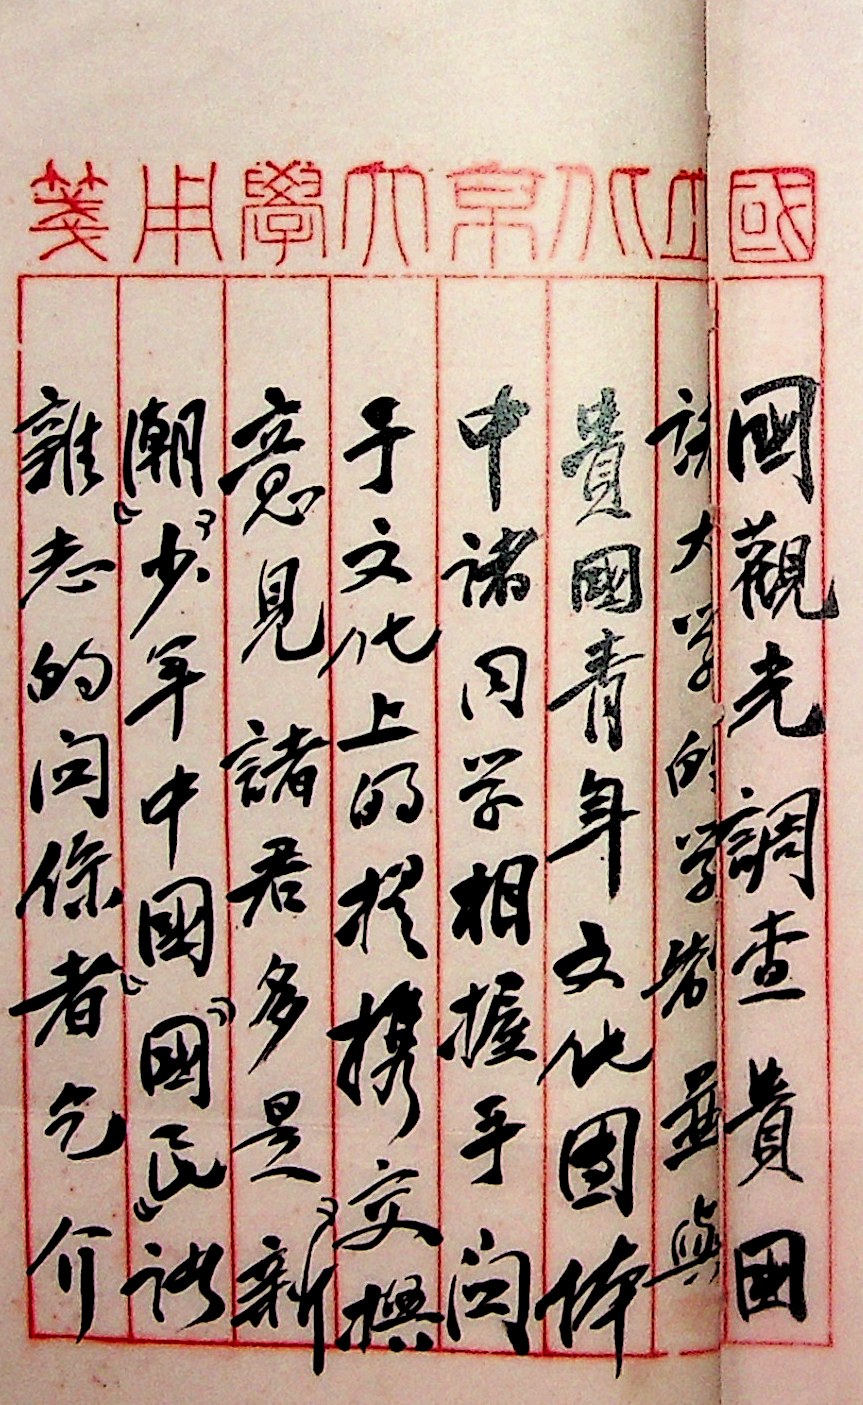 國立北京大學用箋
國觀光調查貴國
大学的学並與
貴國青年文化團体
中諸同学相握手関
于文化上的提携交換
意見諸君多是“新
潮”“少年中國”“國民”諸
雜志的関係者乞介